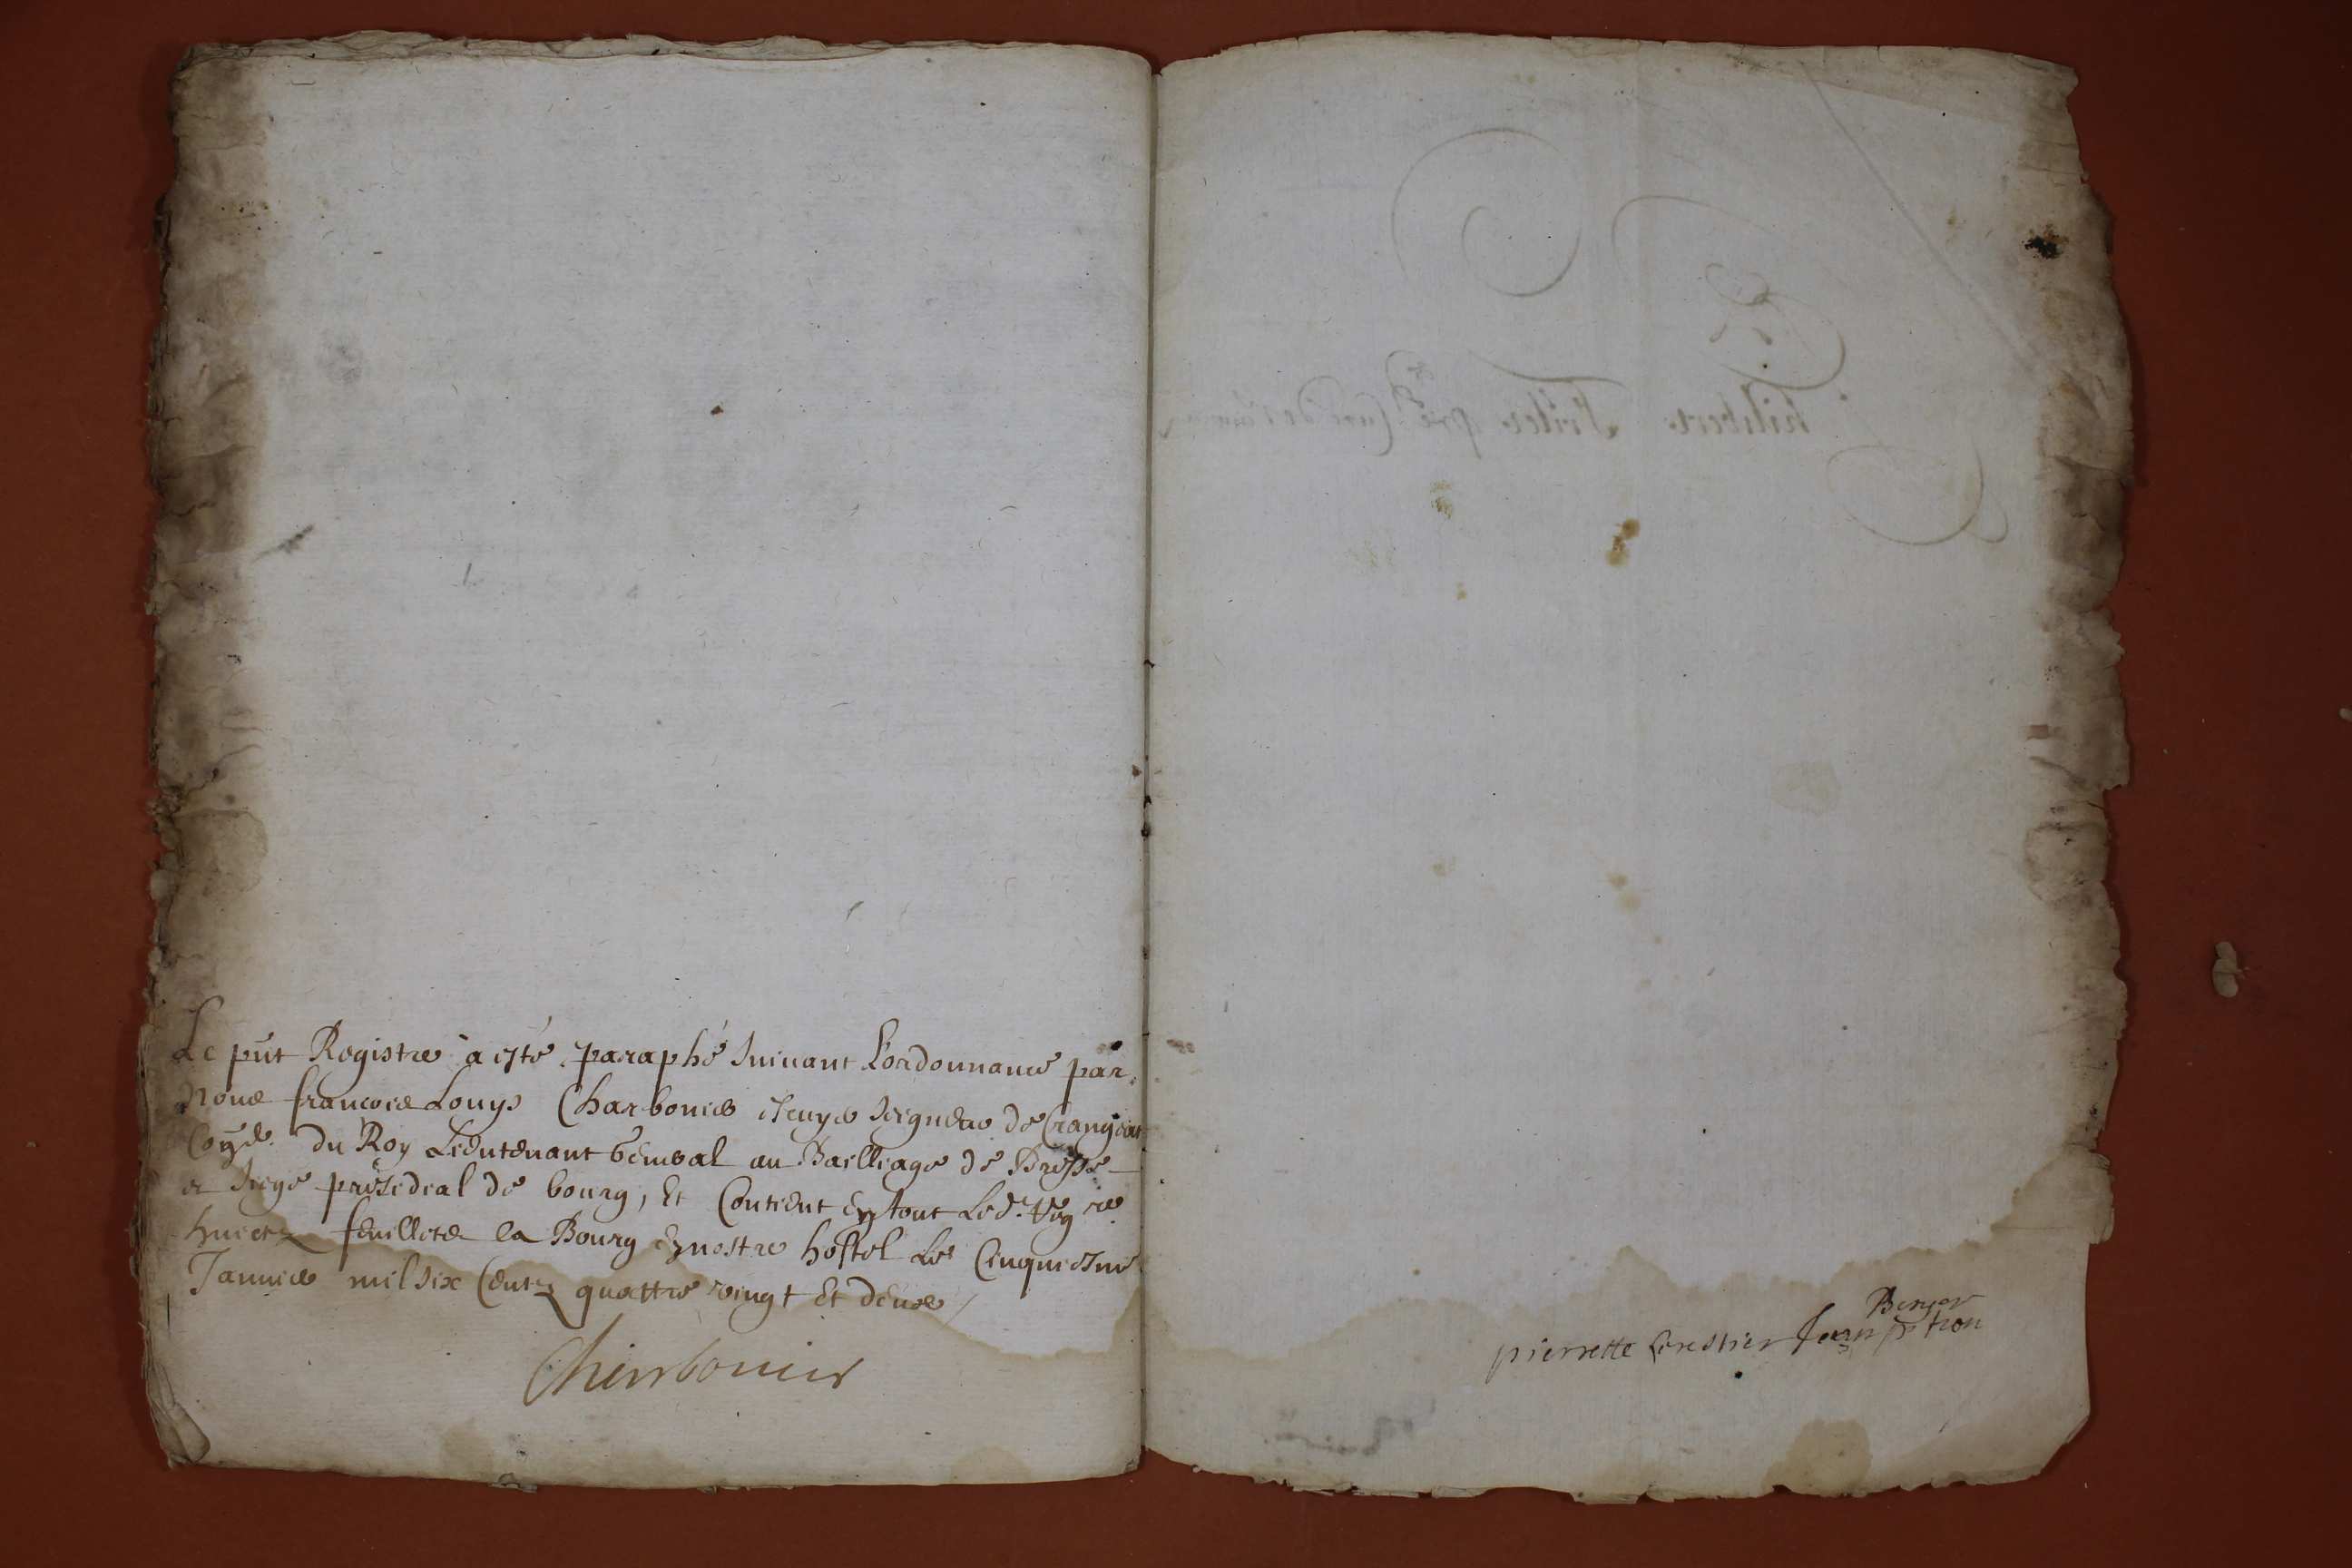 Le pñt Registre a esté paraphé suivant L'ordonnance par
Nous francois Louys Charbonier escuyer seigneur de Crangeat
Coner. du Roy Lieutenant General au Bailliage de Bresse
et siege presidial de bourg, Et Contient En tout Led. Reg re
huictz feuilletz a Bourg En nostre hostel Le Cinquiesme
Januier mil six Centz quattre vingt Et deux /
Charbonier
Philibert prê Curé de
Berger
pierrette